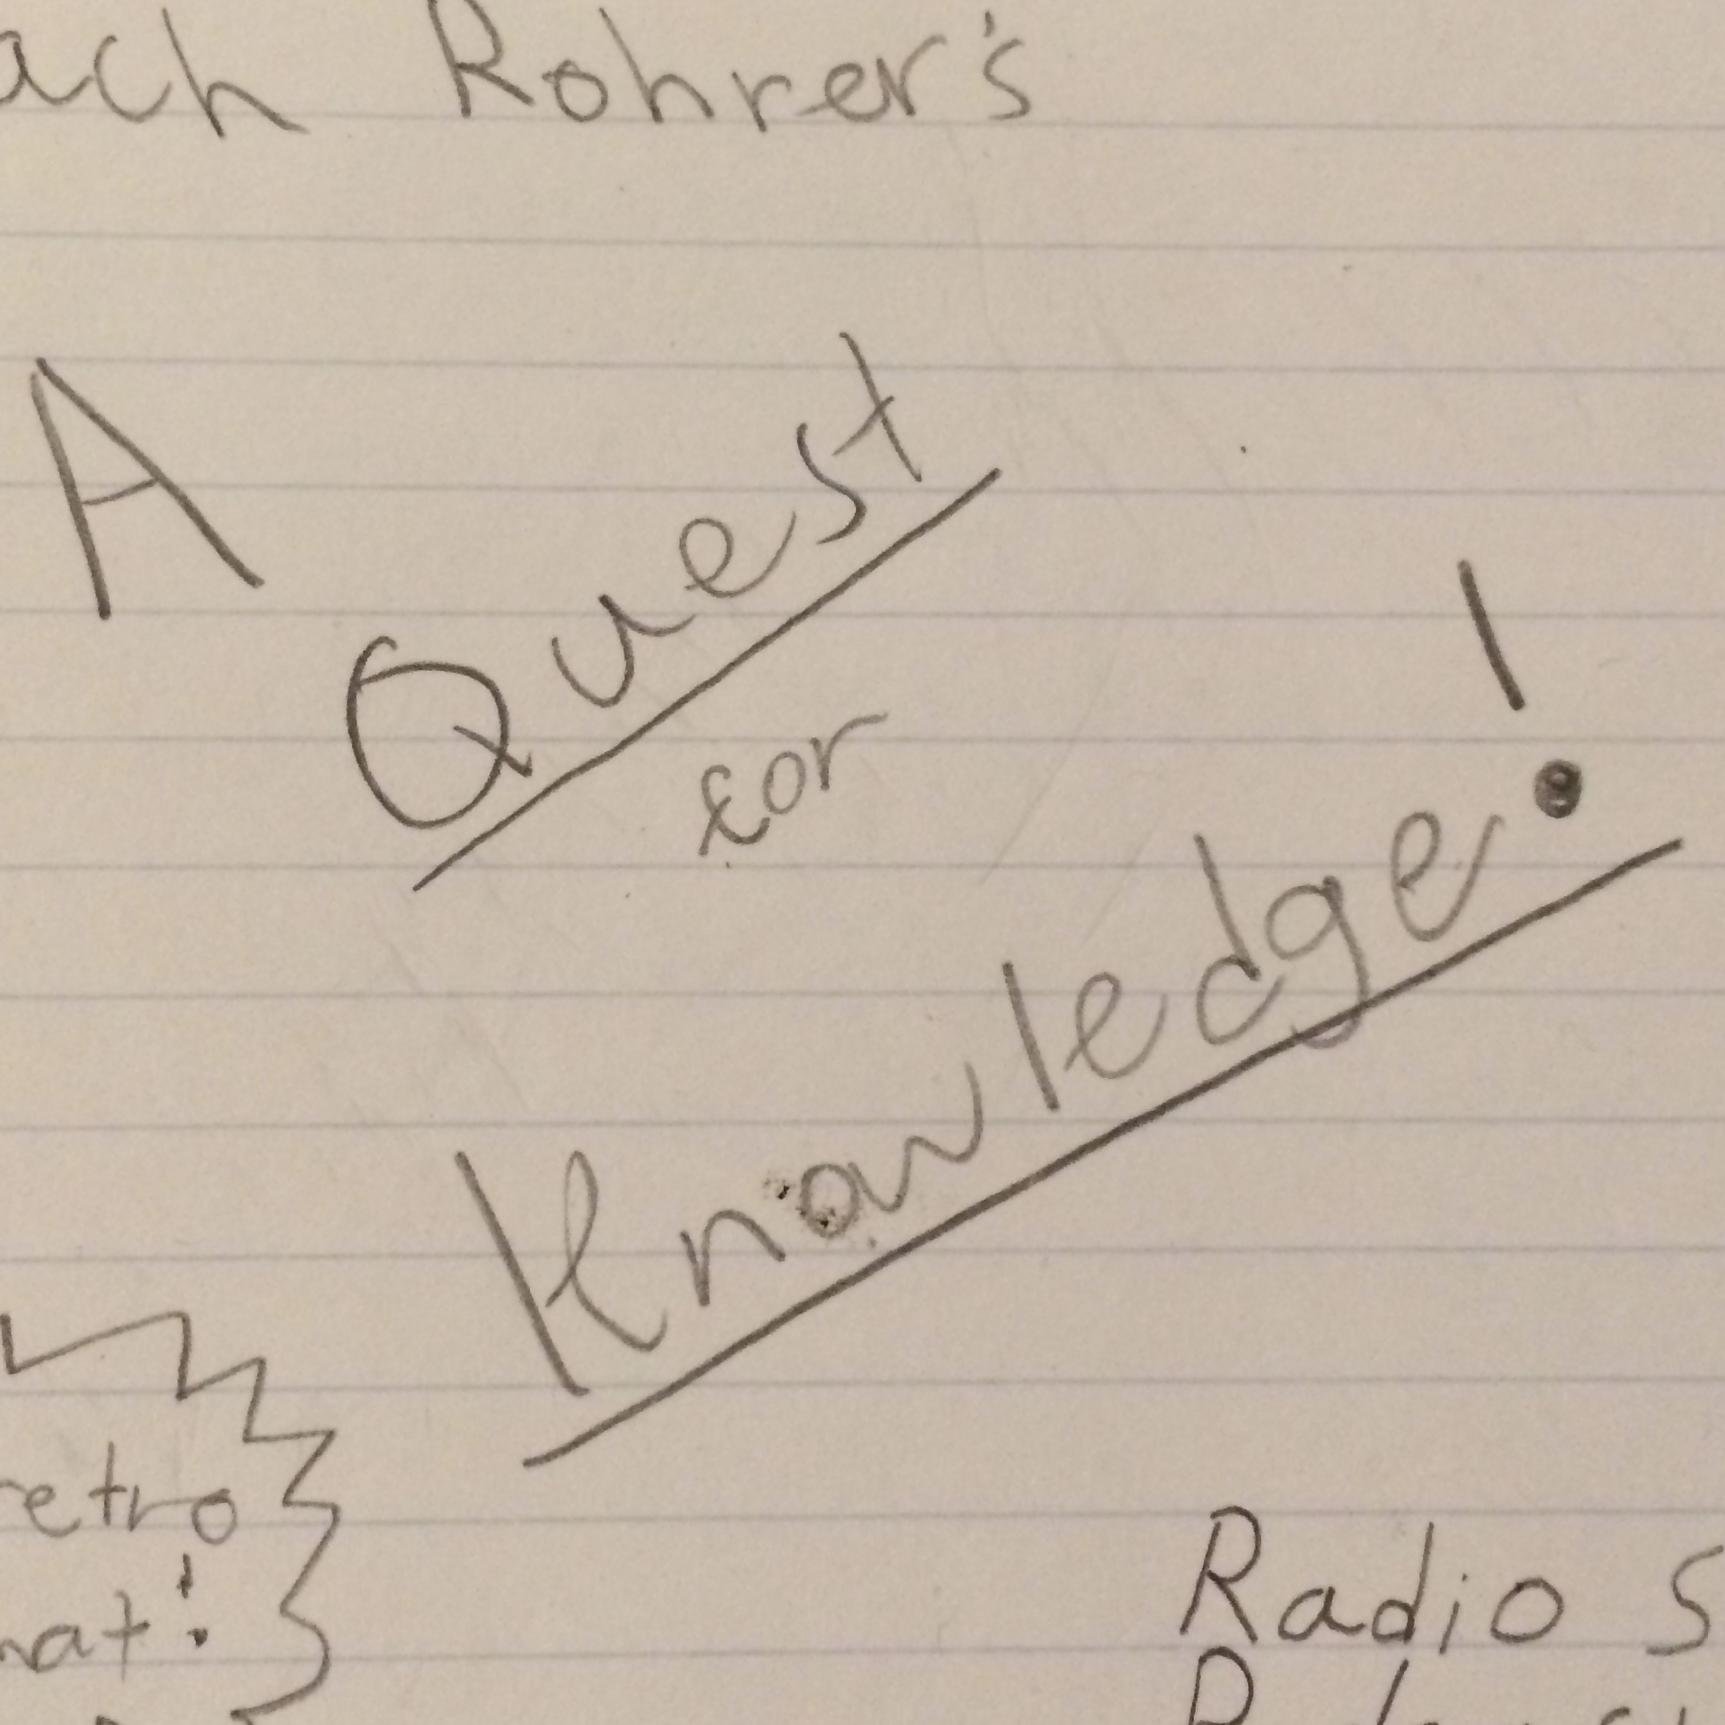 ach Rohrer's
A
Quest
for
Knowledge!
retro
mat!
Radio S